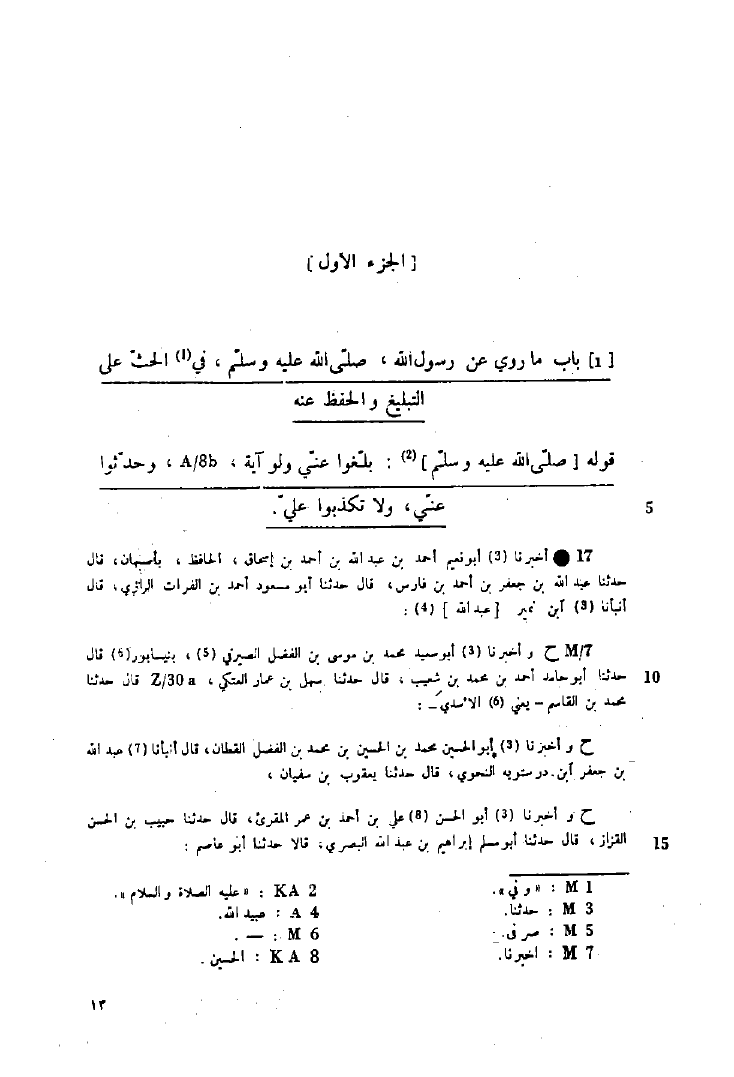 [ الجزء الاول ]
[1] باب ما روي عن رسول الله ، صلّى الله عليه وسلّم ، في (1) الحثّ على
التبليغ و الحفظ عنه
قوله [ صلّى الله عليه وسلّم ] (2) : بلّغوا عنّي ولو آية ، A/8b ، وحدّثوا
عنّي ، ولا تكذبوا عليّ .
5
17 ● أخبرنا (3) أبو نعيم أحمد بن عبد الله بن أحمد بن إسحاق ، الحافظ ، بأصبهان ، قال
حدثنا عبد الله بن جعفر بن أحمد بن فارس ، قال حدثنا أبو مسعود أحمد بن الفرات الرازي ، قال
أنبأنا (3) آبن نمير [ عبد الله ] (4) :
M/7 ح و أخبرنا (3) أبو سعيد محمد بن موسى بن الفضل الصيرفي (5) ، بنيسابور (6) قال
حدثنا أبو حامد أحمد بن محمد بن شعيب ، قال حدثنا سهل بن عمار العتكي ، Z/30 a قال حدثنا
10
محمد بن القاسم – يعني (6) الاسدي – :
ح و أخبرنا (3) أبو الحسين محمد بن الحسين بن محمد بن الفضل القطان ، قال أنبأنا (7) عبد الله
بن جعفر آبن درستويه النحوي ، قال حدثنا يعقوب بن سفيان ،
ح و أخبرنا (3) أبو الحسن (8) علي بن أحمد بن عمر المقرئ ، قال حدثنا حبيب بن الحسن
القزاز ، قال حدثنا أبو مسلم إبراهيم بن عبد الله البصري ، قالا حدثنا أبو عاصم :
15
M 1 : «و في».
KA 2 : «عليه الصلاة و السلام».
M 3 : حدثنا.
A 4 : عبيد الله.
M 5 : صرفى.
M 6 : — .
M 7 : اخبرنا.
KA 8 : الحسين.
١٣